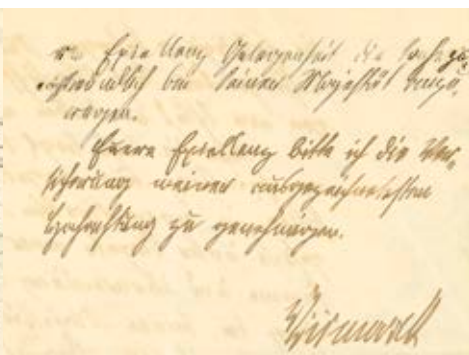 Excellenz Gelegenheit die Sache
bei Seiner Majestät anzu-
regen.
Euere Excellenz bitte ich die Ver-
sicherung meiner ausgezeichnetsten
Hochachtung zu genehmigen.
Bismarck